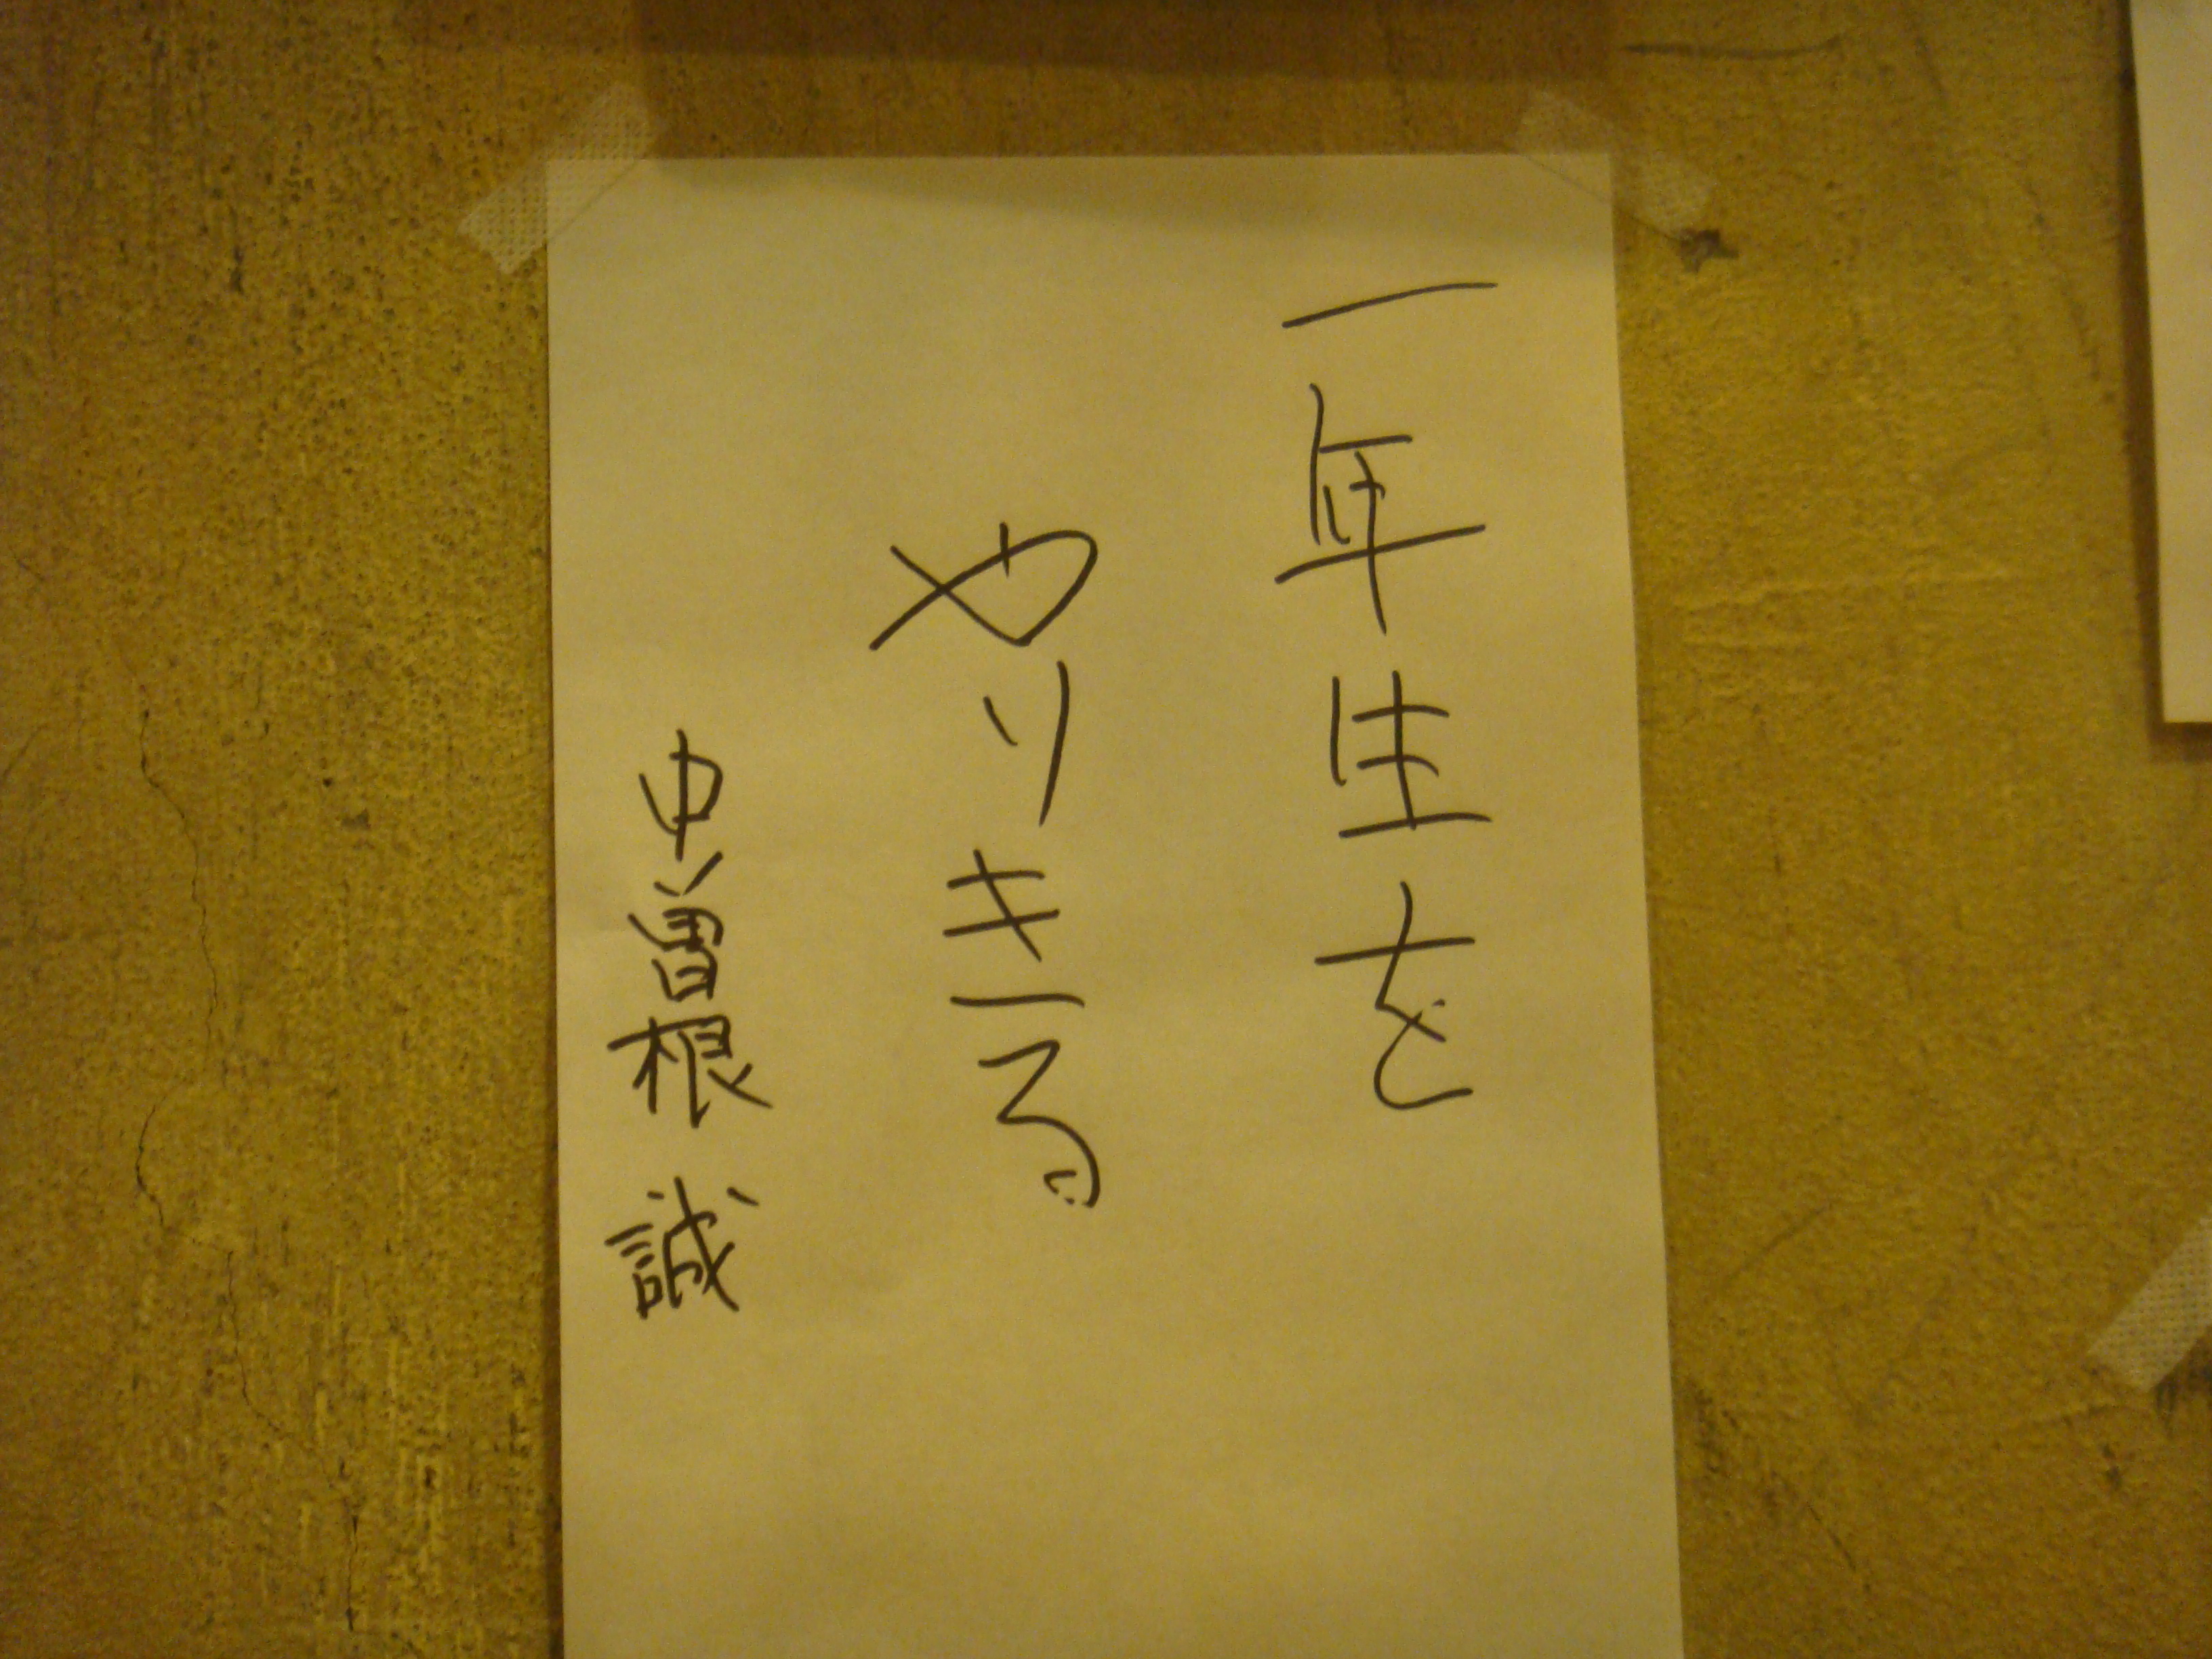 一年生を
やりきる
中曽根 誠